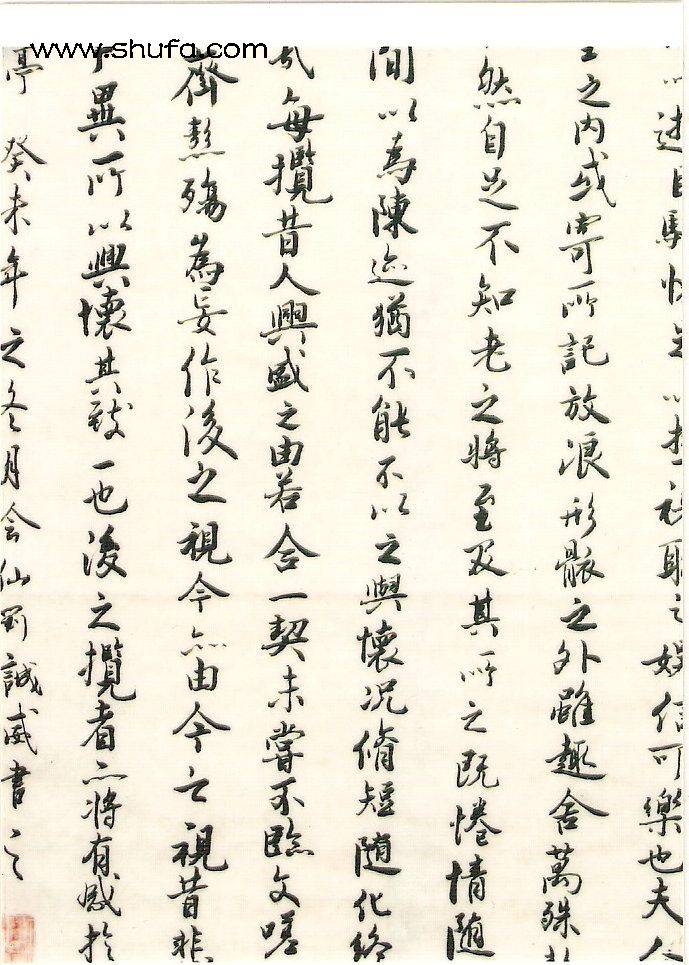 www.shufa.com
以遊目騁怀足以極視聽之娛信可樂也夫人
之内或寄所記放浪形骸之外雖趣舍萬殊
然自足不知老之將至及其所之既惓情随
間以為陳迹猶不能不以之興懷况脩短随化終
哉每攬昔人興感之由若合一契未嘗不臨文嗟
齊彭殤為妄作後之視今亦由今之視昔悲
異所以興懷其致一也後之攬者亦將有感於
亭 癸未年之冬月会仙劉誠威書之